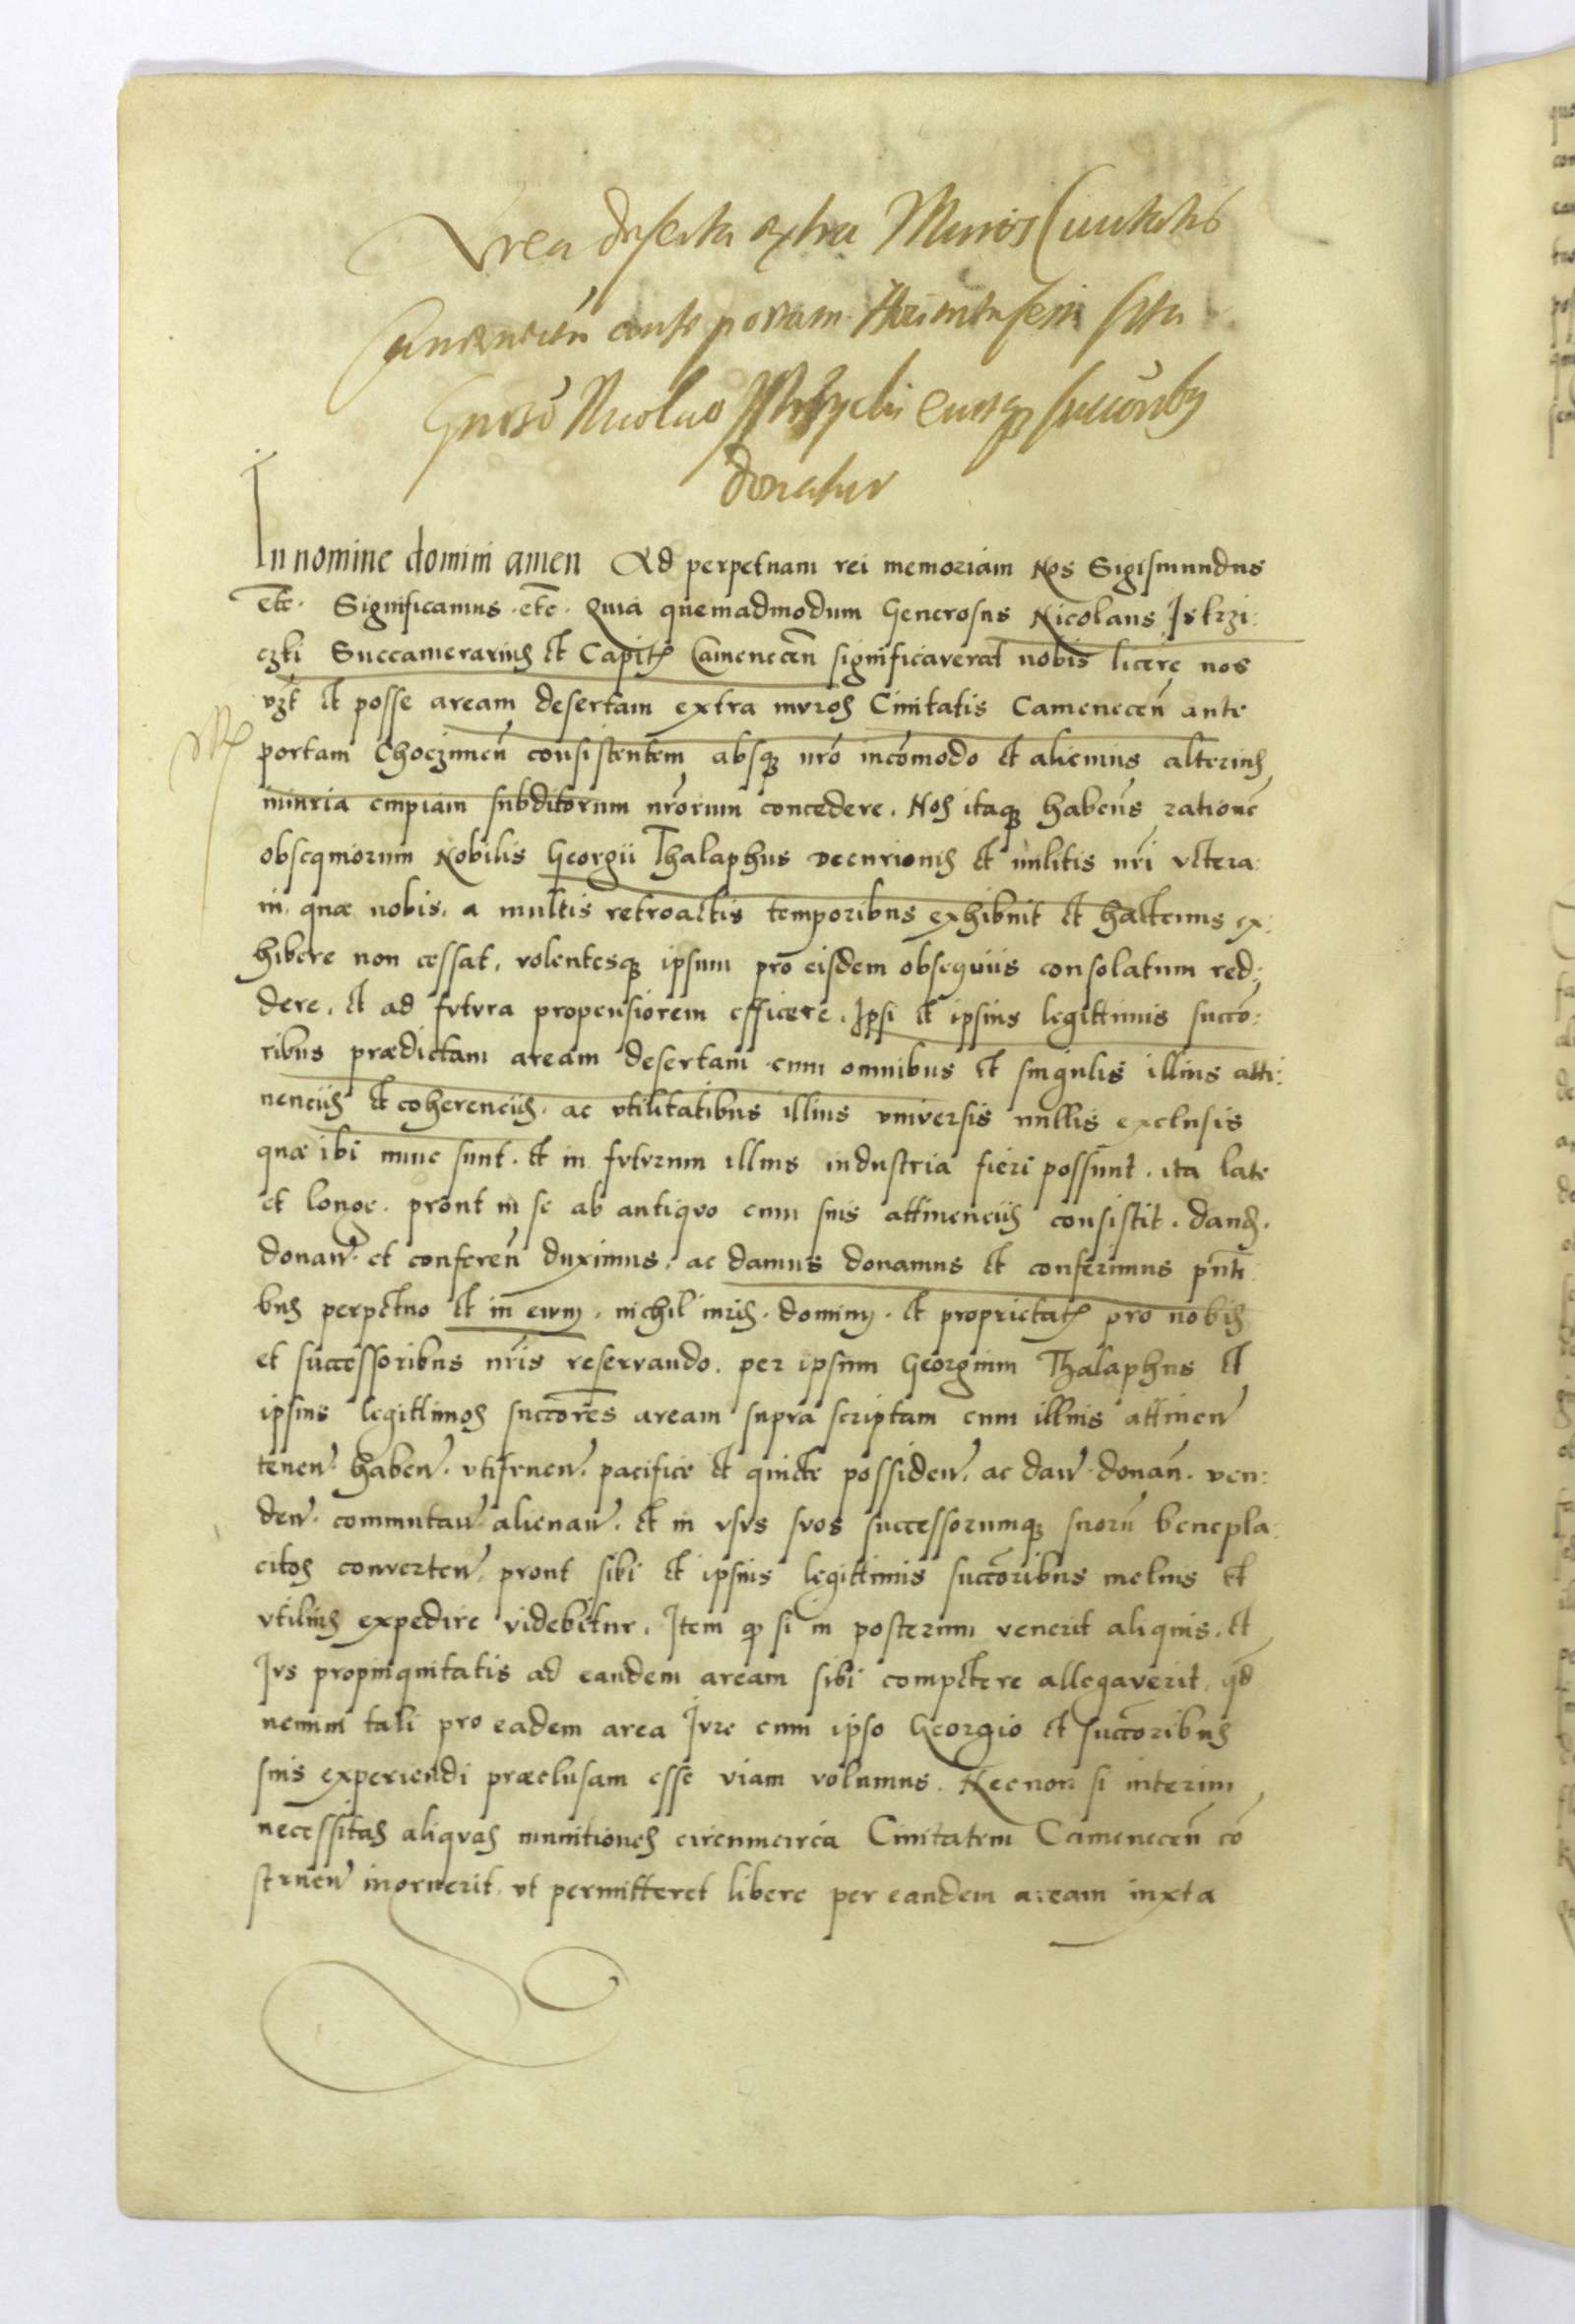 Area deserta extra Muros Civitatis
Camenecen̄ ante portam sita
Gnoso Nicolao eiusq; succorib9
donatur
In nomine domini amen Ad perpetuam rei memoriam Nos Sigismundus
etc. Significamus etc. Quia quemadmodum Generosus Nicolaus Iskrzi:
czki Succamerarius et Capit Camenecen̄ significaverat nobis licere nos
vzt et posse aream desertam extra mvros Civitatis Camenecen̄ ante
portam Choczimen̄ consistentem absq; nr̄o incōmodo et alicuius alterius
iniuria empiam subditorum nr̄orum concedere. Nos itaq; habeñs rationē
obsequiorum Nobilis Georgii Thalaphus Decurionis et militis nr̄i vetera:
ni, quæ nobis, a multis retroactis temporibus exhibuit et hactenus ex:
hibere non cessat, volentesq; ipsum pro eisdem obsequiis consolatum red:
dere, et ad fvtvra propensiorem efficere. Ipsi et ipsius legittimis succō:
ribus prædictam aream desertam cum omnibus et singulis illius atti:
nenciis et coherenciis, ac vtilitatibus illius vniversis nullis exclusis
quæ ibi nunc sunt. et in fvtvrum illius industria fieri possunt. ita late
et longe. prout in se ab antiqvo cum suis attinenciis consistit. dand.
donan. et conferen̄ duximus, ac damus donamus et conferimus pn̄ti
bus perpetuo et in ewm, nichil iuris. dominij. et proprietat pro nobis
et successoribus nr̄is reservando. per ipsum Georgium Thalaphus et
ipsius legittimos succōres aream supra scriptam cum illius attinen
tenen. haben. vtifruen. pacifice et quiete possiden, ac dan donan̄. ven:
den. commutan alienan. et in vsvs svos successorumq; suorū benepla:
citos converten, prout sibi et ipsius legittimis succōribus melius et
vtilius expedire videbitur. Item q si in posterum venerit aliquis, et
Ivs propinquitatis ad eandem aream sibi competere allegaverit, qd
nemini tali pro eadem area Ivre cum ipso Georgio et succōribus
suis experiendi præclusam esse viam volumus. Necnon si interim
necessitas aliqvas munitiones circumcirca Civitatem Camenecen̄ cō
struen ingruerit, vt permitteret libere per eandem aream iuxta